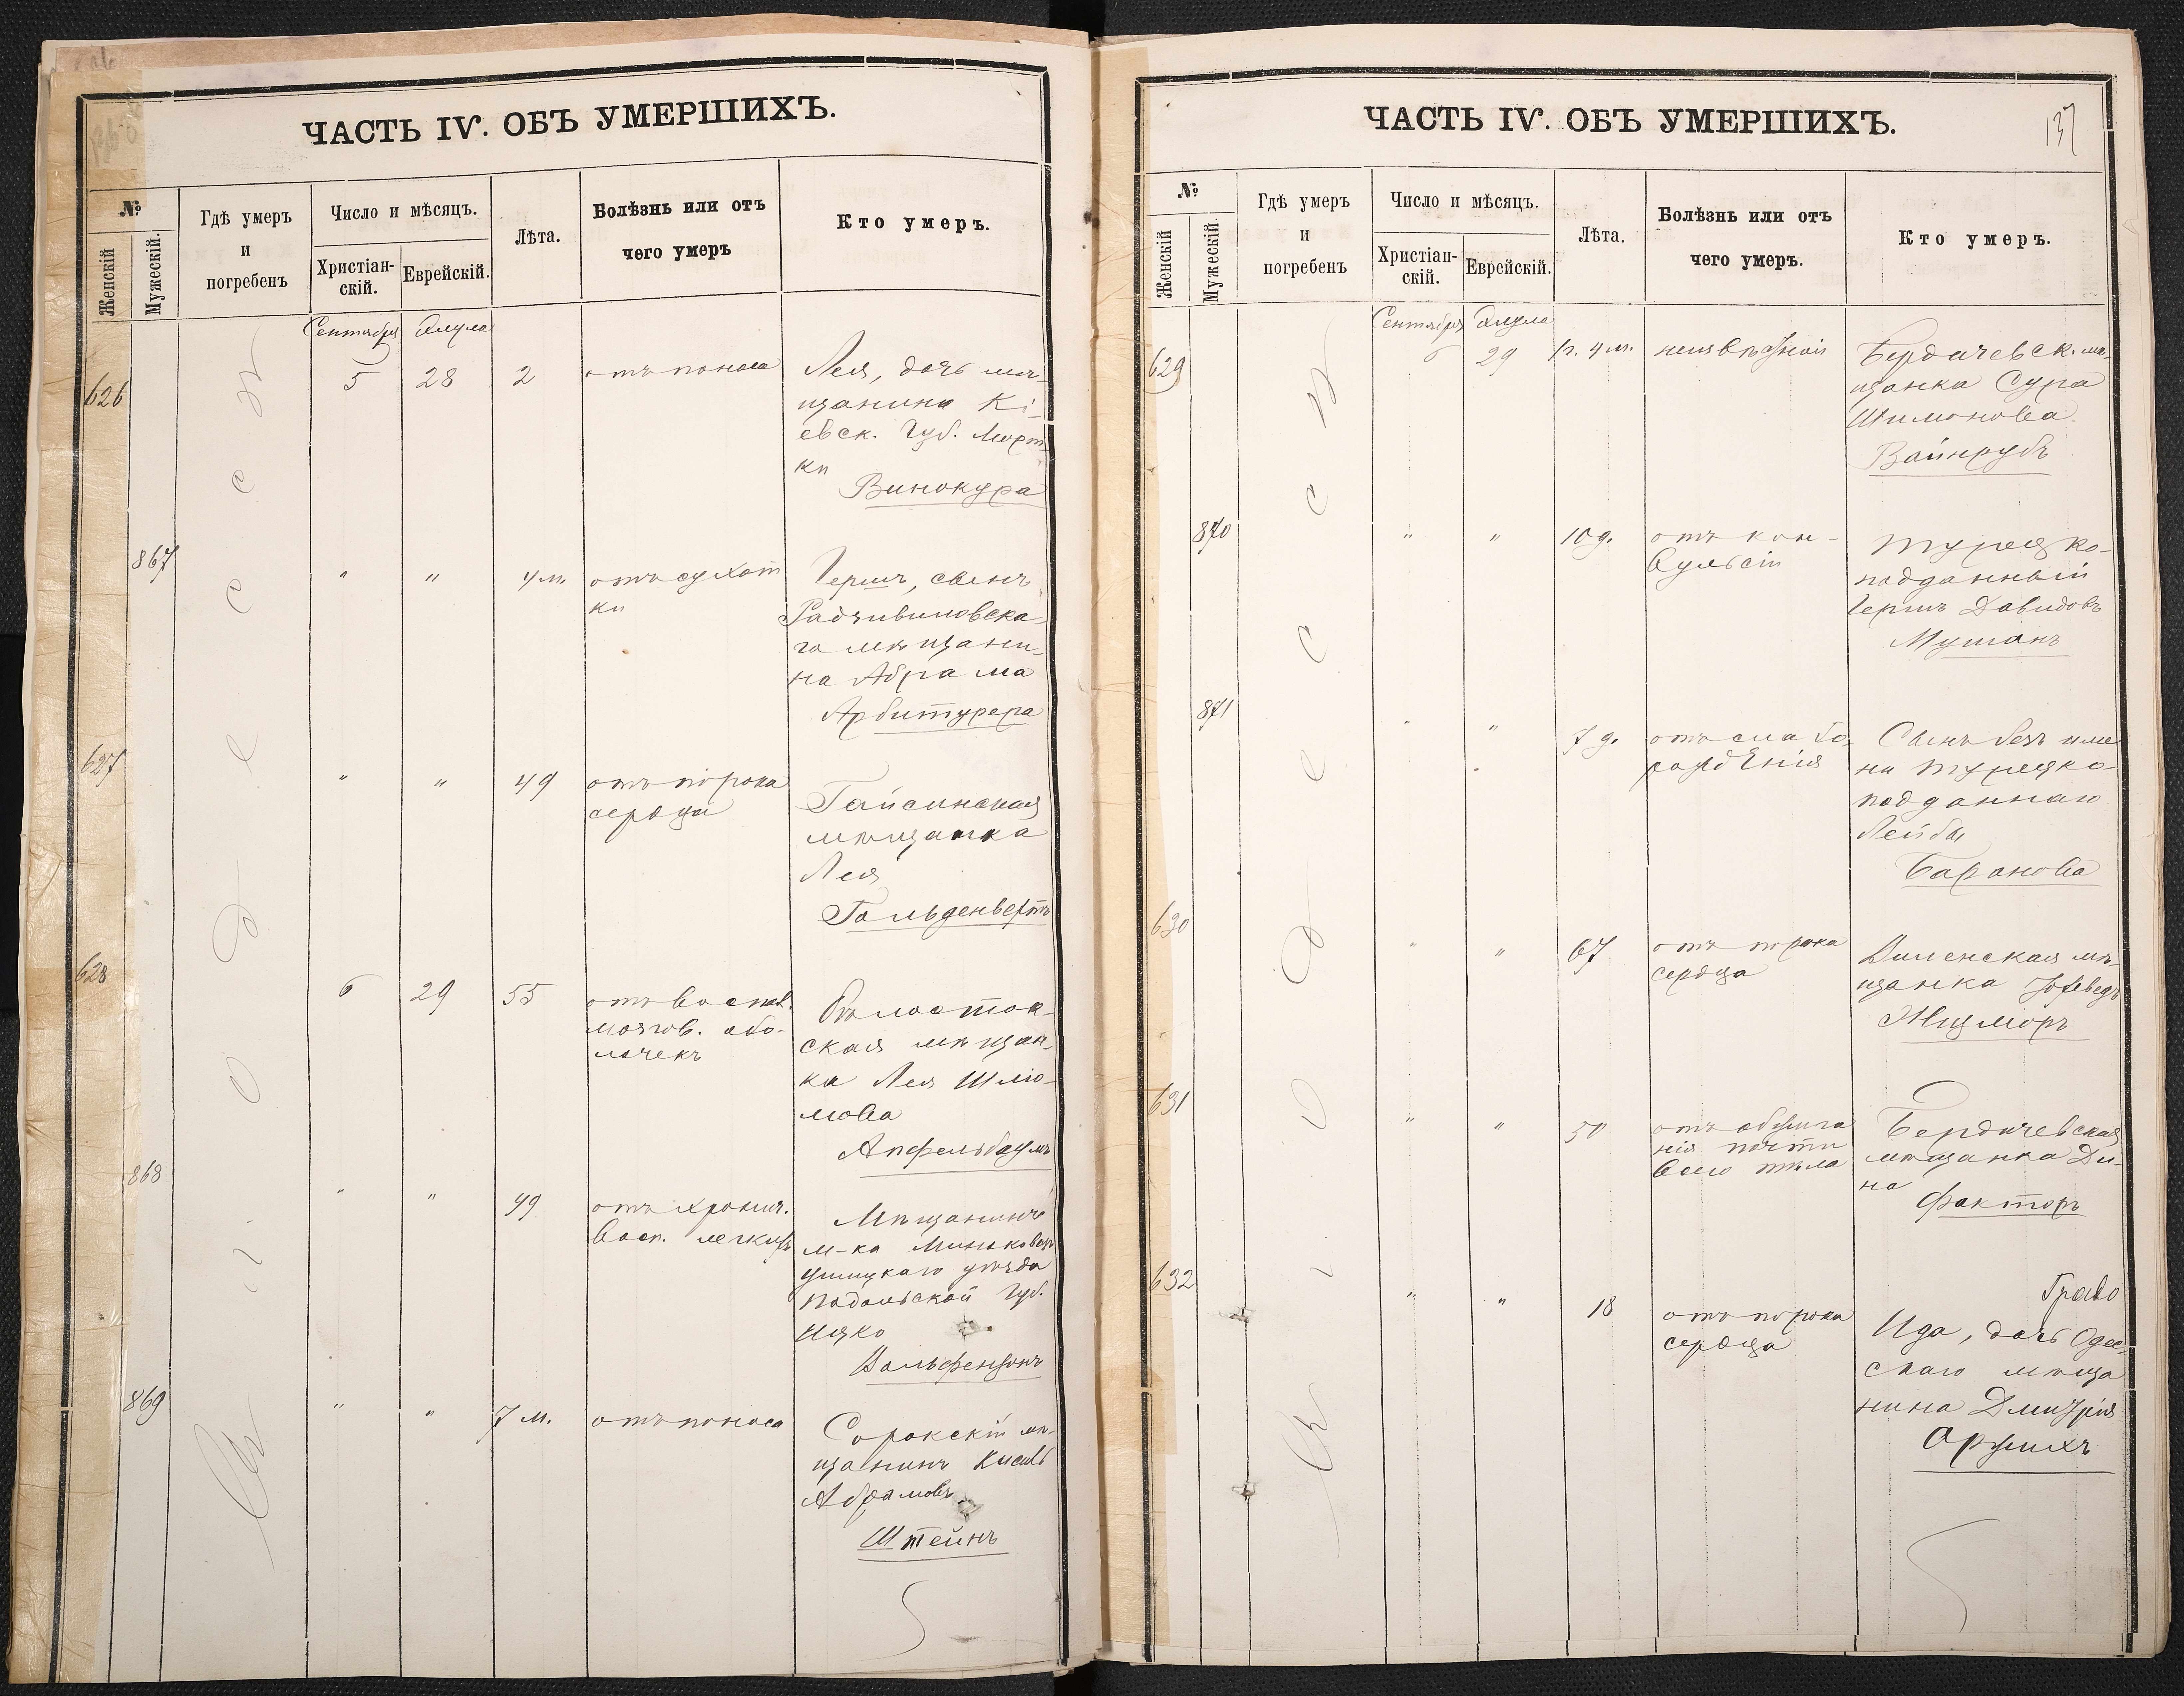 ЧАСТЬ IV. ОБЪ УМЕРШИХЪ.
№
Женскій
Мужескій.
Гдѣ умеръ
и
погребенъ
Число и мѣсяцъ.
Христіан-
скій.
Еврейскій.
Лѣта.
Болѣзнь или отъ
чего умеръ
Кто умеръ.
Сентября Элула
626
5 28 2 отъ поноса
Лея, дочь мѣ-
щанина Кі-
евск. Губ. Морт
ки
Винокура
867
" " 4 м. отъ сухот
ки
Гершъ, сынъ
Радзивиловска-
го мѣщани-
на Абрама
Арбитурера
627
" " 49 отъ порока
сердца
Гайсинская
мѣщанка
Лея
Гольденвертъ
628
6 29 55 отъ воспал.
мозгов. обо-
лочекъ
Бѣлосток-
ская мѣщан-
ка Лея Шлио-
мова
Апфельбаумъ
868
" " 49 отъ хронич.
Восп. легкихъ
Мѣщанинъ
м-ка Миньковецъ
Ушицкаго уѣзда
Подольской Губ.
Ицко
Вольфензонъ
869
" " 7 м. отъ поноса
Сорокскій мѣ-
щанинъ Кисиль
Абрамовъ
Штейнъ
Въ Одессѣ
ЧАСТЬ IV. ОБЪ УМЕРШИХЪ.
137
№
Женскій
Мужескій.
Гдѣ умеръ
и
погребенъ
Число и мѣсяцъ.
Христіан-
скій.
Еврейскій.
Лѣта.
Болѣзнь или отъ
чего умеръ.
Кто умеръ.
Сентября Элула
629
6 29 1 г. 4 м. неизвѣстной
Бердичевск. мѣ-
щанка Сура
Шимонова
Вайнрубъ
870
" " 10 д. отъ кон-
вульсіи
Турецко-
подданный
Гершъ Давидовъ
Мушанъ
871
" " 7 д. отъ слабо-
рожденія
Сынъ безъ име
ни Турецко-
подданнаго
Лейбы
Баранова
630
" " 67 отъ порока
сердца
Виленская мѣ-
щанка Іохеведъ
Жижморъ
631
" " 50 отъ обжига
нія почти
всего тѣла
Бердичевская
мѣщанка Ди-
на
Факторъ
632
" " 18 отъ порока
сердца
Ида, дочь Одес-
скаго мѣща
нина Дмитрія
Оржихъ
Въ Одессѣ